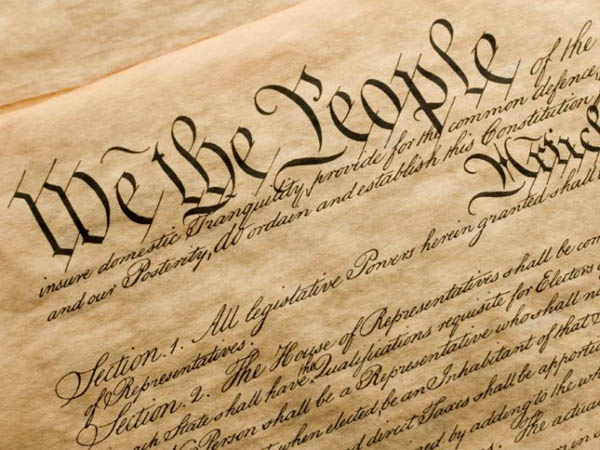 We the People of the
insure domestic Tranquility, provide for the common defence,
and our Posterity, do ordain and establish this Constitution
Article
Section. 1. All legislative Powers herein granted shall
of Representatives.
Section. 2. The House of Representatives shall be com
each State shall have the Qualifications requisite for Electors
No Person shall be a Representative who shall no
when elected, be an Inhabitant of that
and direct Taxes shall be apportio
by adding to the wh
The actual